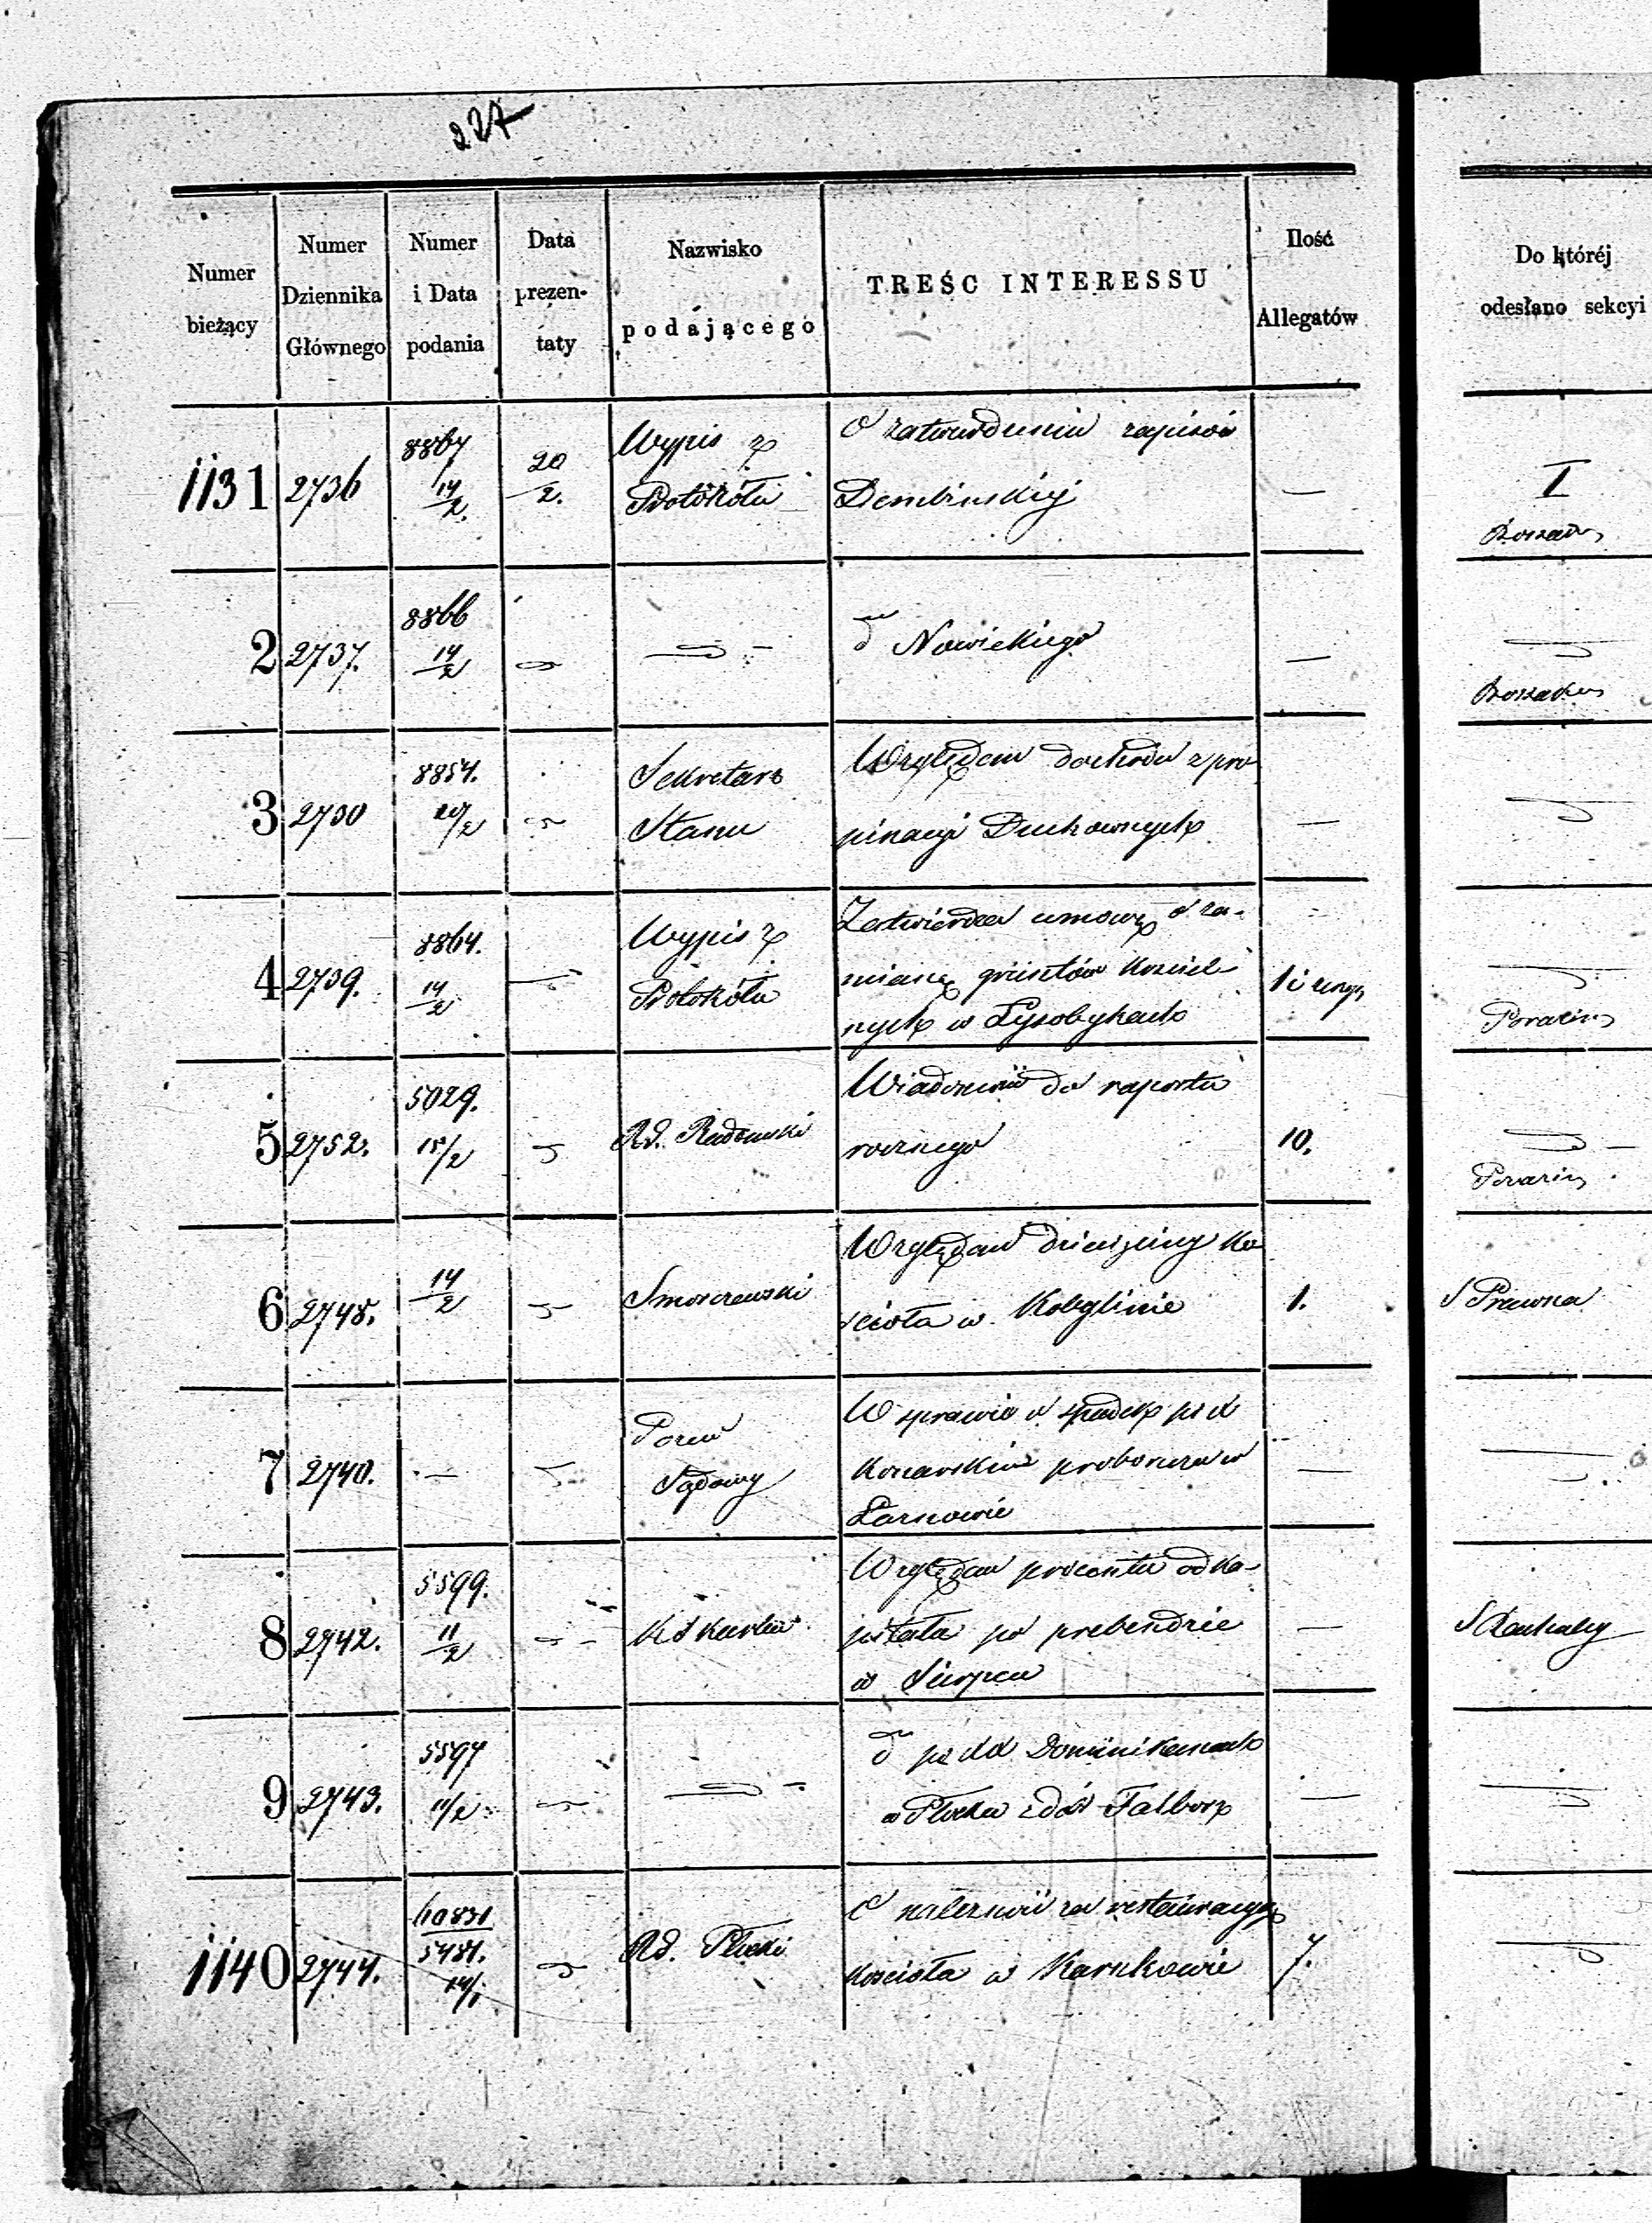 227
Numer bieżący
Numer Dziennika Głównego
Numer i Data podania
Data prezen- taty
Nazwisko podającego
TREŚC INTERESSU
Ilość Allegatów
Do któréj odesłano sekcyi
1131 2736 8867 14/2 20/2. Wypis z Protokółu
O zatwierdzeniu zapisów
Dembinskiej — I
2 2737. 8866 14/2
dto Nowickiego —
3 2730 8854. 20/2 Sekretarz Stanu
Względem dochodu z pro
pinacyi Duchownych —
4 2739. 8864. 14/2 Wypis z Protokółu
Zatwierdza umowę o za-
mianę gruntów Kościel-
nych w Łysobykach
5 2752. 5029. 15/2 Rd. Radomski
Wiadomość do raportu
rocznego 10.
6 2748. 14/2 Smorczewski
Względem dziesięciny Ko
ścioła w Kobylinie 1. S Prawna
7 2740. — Sądowy
W sprawie o spadek po x
proboszczu w
Tarnowie —
8 2742. 5599. 11/2
Względem procentu od Ka-
pitału po prebendzie
w Sierpcu —
9 2743. 5597 11/2
dto po XX Dominikanach
w Płocku z dóbr —
1140 2744. 60831 5481. 14/1 Rd. Płocki
O należność za restauracyę
kościoła w Karnkowie 7.